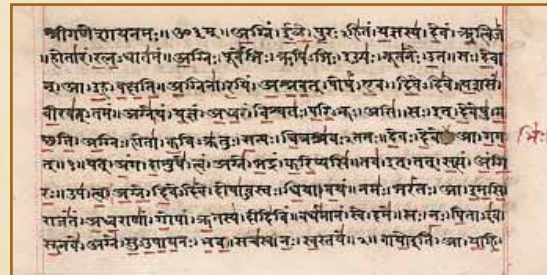 श्रीगणेशायनमः॥ॐ३म्॥अग्निं।ईळे।पुरःऽहितं।यज्ञस्य।देवं।ऋत्विजं
॥होतारं।रत्नऽधातमं॥अग्निः।पूर्वेभिः।ऋषिऽभिः।ईड्यः।नूतनैः।उत॥सः।देवा
न्।आ।इह।वक्षति॥अग्निना।रयिं।अश्नवत्।पोषं।एव।दिवेऽदिवे॥यशसं
वीरवत्ऽतमं॥अग्ने।यं।यज्ञं।अध्वरं।विश्वतः।परिऽभूः।असि॥सः।इत्।देवेषु।ग
च्छति॥अग्निः।होता।कविऽक्रतुः।सत्यः।चित्रश्रवःऽतमः॥देवः।देवे आ।गम
त्॥१॥यत्।अंग।दाशुषे।त्वं।अग्ने।भद्रं।करिष्यसि॥तव।इत्।तत्।सत्यं।अंगि
रः॥उप।त्वा।अग्ने।दिवेऽदिवे।दोषाऽवस्तः।धिया।वयं॥नमः।भरंतः।आ।इमसि॥
राजंतं।अध्वराणां।गोपां।ऋतस्य।दीदिविं॥वर्धमानं।स्वे।दमे॥सः।नः।पिताऽइव
सूनवे।अग्ने।सुऽउपायनः।भव॥सचस्व।नः।स्वस्तये॥२॥वायो इति।आ।याहि।
भिः